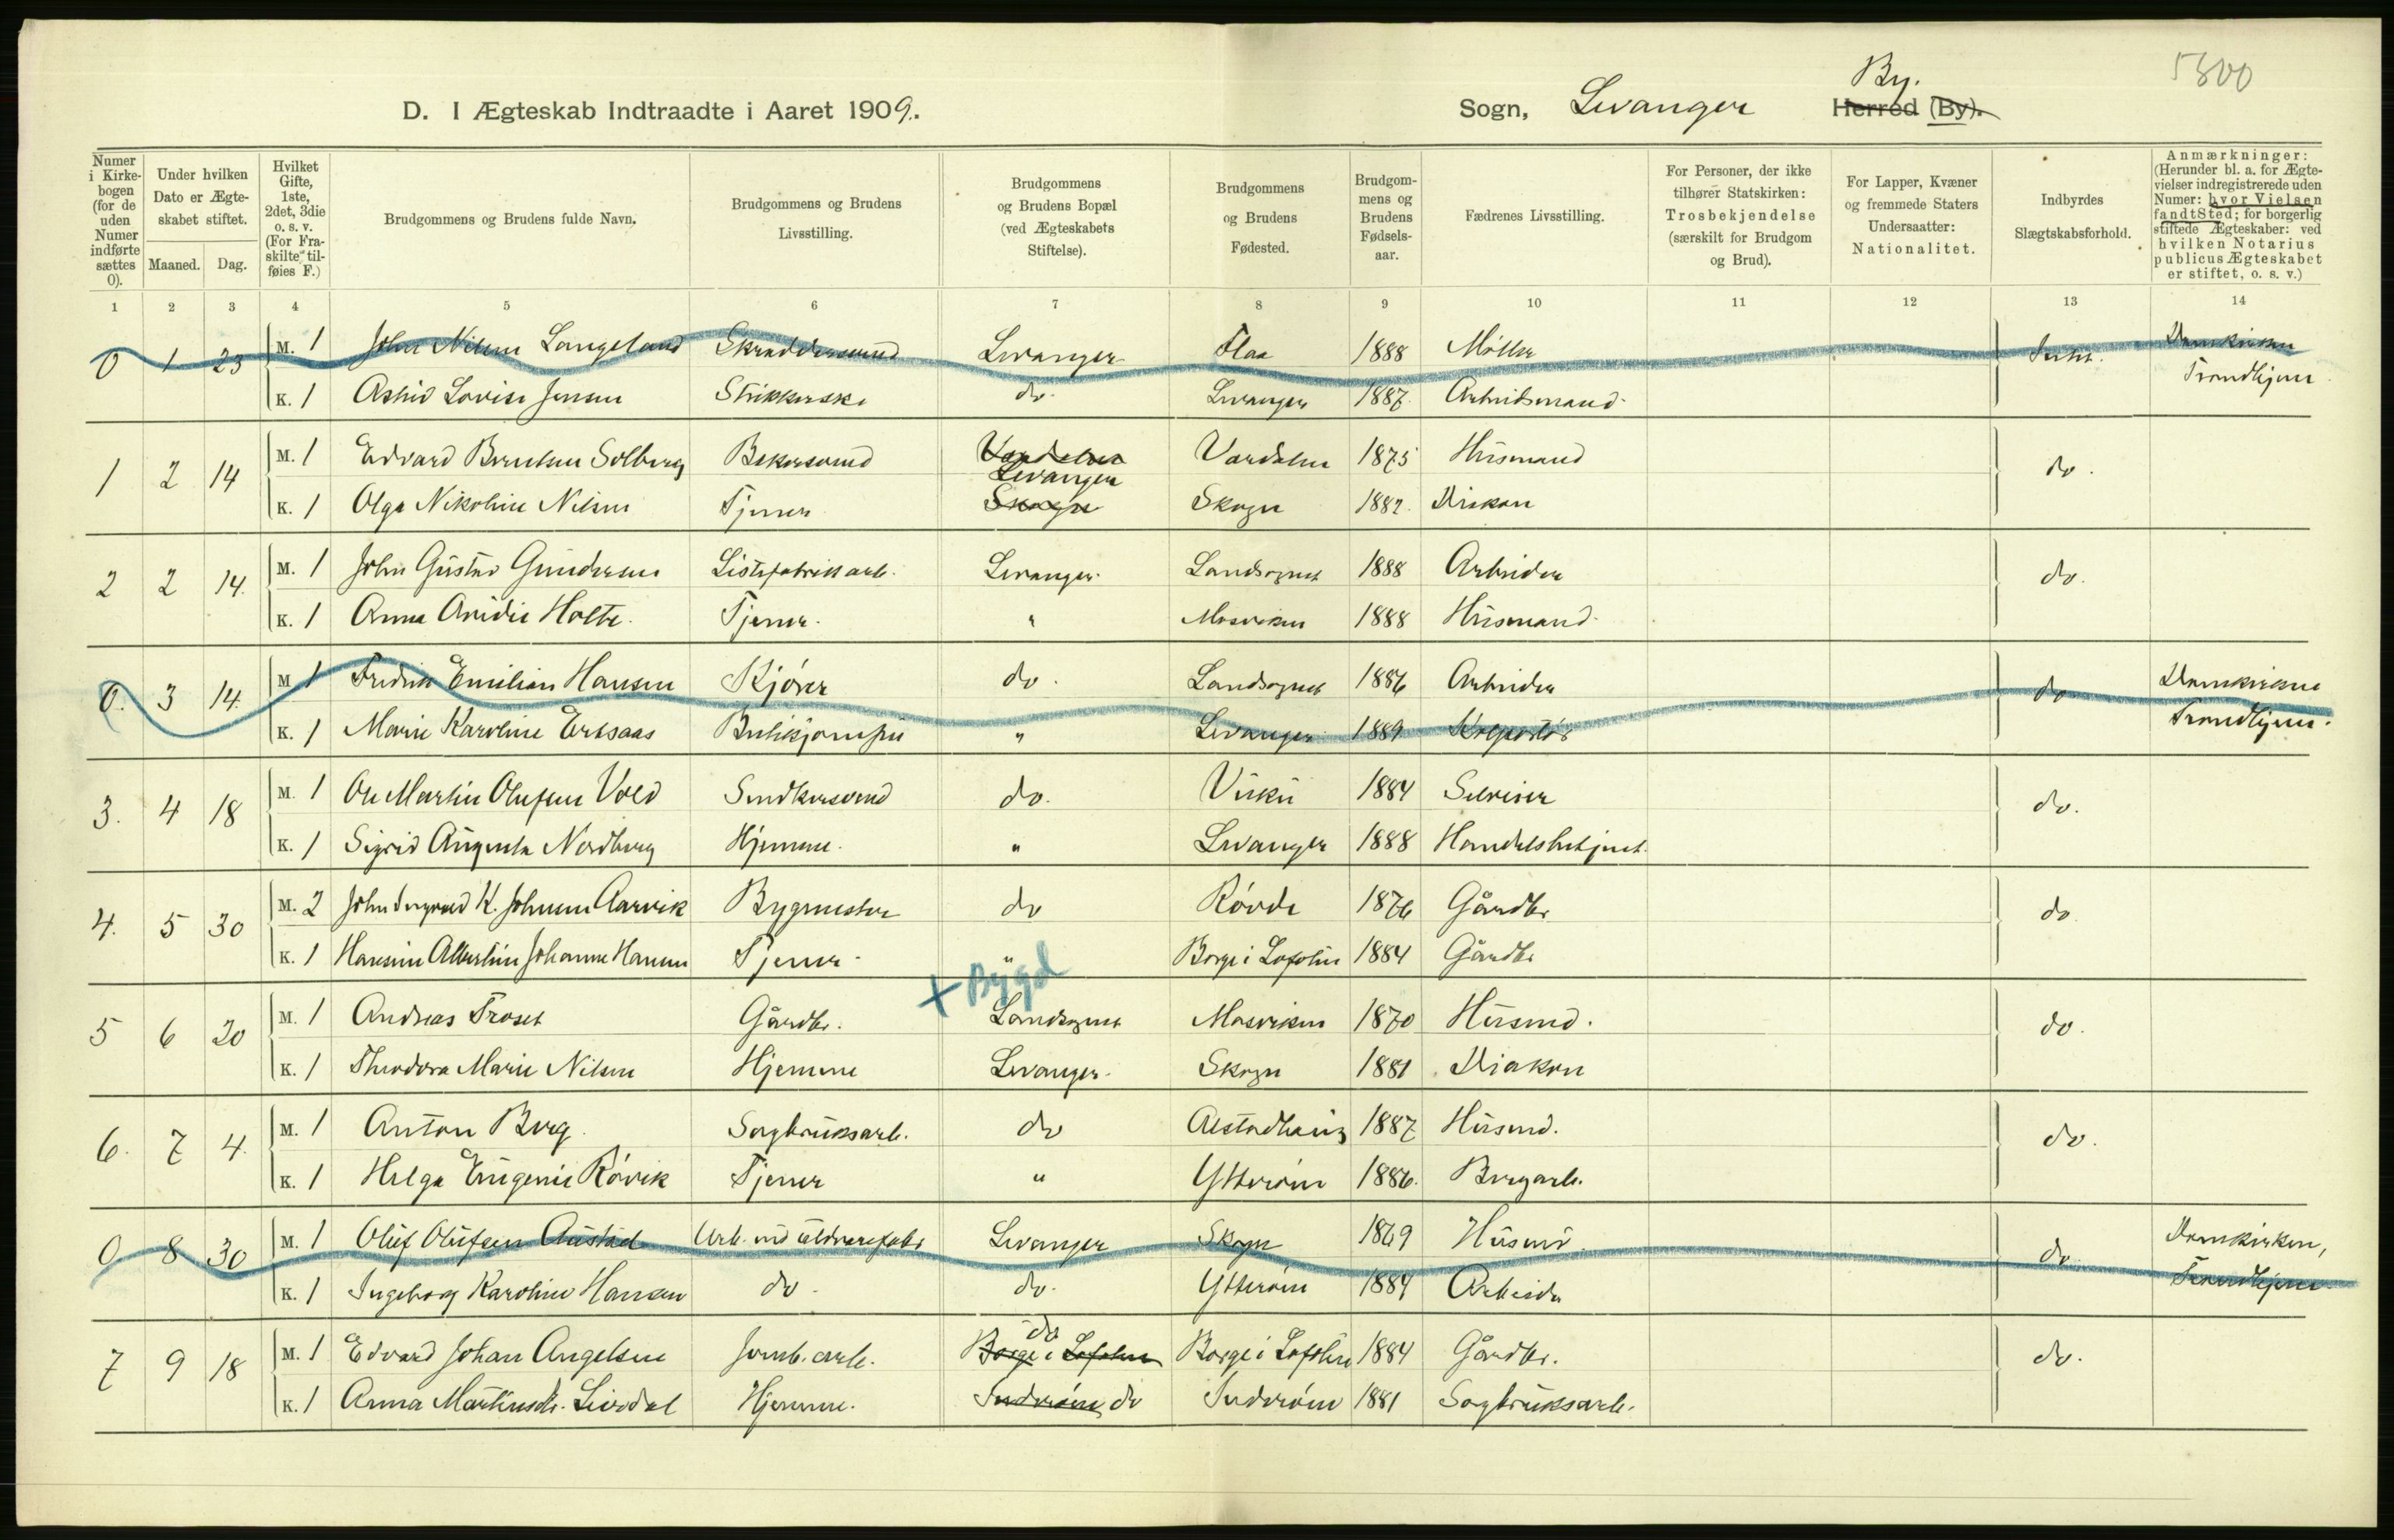 5800
By.
D. I Ægteskab Indtraadte i Aaret 1909. Sogn, Levanger Herred (By).
Numer i Kirkebogen (for de uden Numer indførte sættes 0).
Under hvilken Dato er Ægteskabet stiftet.
Maaned. Dag.
Hvilket Gifte, 1ste, 2det, 3die o. s. v. (For Fraskilte tilføies F.)
Brudgommens og Brudens fulde Navn.
Brudgommens og Brudens Livsstilling.
Brudgommens og Brudens Bopæl (ved Ægteskabets Stiftelse).
Brudgommens og Brudens Fødested.
Brudgommens og Brudens Fødselsaar.
Fædrenes Livsstilling.
For Personer, der ikke tilhører Statskirken: Trosbekjendelse (særskilt for Brudgom og Brud).
For Lapper, Kvæner og fremmede Staters Undersaatter: Nationalitet.
Indbyrdes Slægtskabsforhold.
Anmærkninger: (Herunder bl. a. for Ægtevielser indregistrerede uden Numer: hvor Vielsen fandt Sted; for borgerlig stiftede Ægteskaber: ved hvilken Notarius publicus Ægteskabet er stiftet, o. s. v.)
1 2 3 4 5 6 7 8 9 10 11 12 13 14
0 1 23 M. 1 John Nilsen Langeland Skræddersvend Levanger Flaa 1888 Møller Domkirken
K. 1 Astrid Lovise Jensen Strikkerske do. Levanger 1887 Arbeidsmand Trondhjem.
1 2 14 M. 1 Edvard Berntsen Solberg Bakersvend Værdalen Levanger Værdalen 1875 Husmand do.
K. 1 Olga Nikoline Nilsen Tjener Skogn Skogn 1882. Diakon
2 2 14. M. 1 John Gustav Gundersen Listefabrikarb. Levanger Landsognet 1888 Arbeider do.
K. 1 Anna Ovidie Holte. Tjener. " Mosviken 1888 Husmand.
0. 3 14. M 1 Fredrik Emilian Hansen Kjører do. Landsognet 1886 Arbeider do Domkirken
K. 1 Marie Karoline Ertsaas Butikjomfru " Levanger 1889 Trondhjem.
3. 4 18 M. 1 Ole Martin Olufsen Vold Smedkersvend do. Vuku 1884 Selveier do.
K. 1 Sigrid Augusta Nordberg Hjemme. " Levanger 1888 Handelsbetjent.
4. 5 30 M. 2 John K. Johnsen Aarvik Bygmester do Røvde 1876 Gårdbr. do
K. 1 Hansine Albertine Johanne Hansen Tjener. " Borge i Lofoten 1884 Gårdbr
+ Bygd
5 6 20 M. 1 Andreas Troset Gårdbr. Landsognet Mosviken 1870 Husmd. do.
K. 1 Theodora Marie Nilsen Hjemme Levanger Skogn 1881 Diakon
6. 7 4. M. 1 Anton Berg Sagbruksarb. do Alstadhaug 1887 Husmd. do.
K. 1 Helga Eugenie Røvik Tjener " Ytterøen 1886. Bergarb.
0 8 30 M. 1 Oluf Olufsen Austad Arb. ved uldvarefabr Levanger Skogn 1869 Husmd do Domkirken,
K. 1 Ingeborg Karoline Hansen do. do. Ytterøen 1884 Arbeider Trondhjem
7 9 18 M. 1 Edvard Johan Angelsen Jernb. arb. Borge i Lofoten do Borge i Lofoten 1884 Gårdbr. do.
K. 1 Anna Martinsdtr. Leirdal Hjemme. Inderøen do Inderøen 1881 Sagbruksarb.